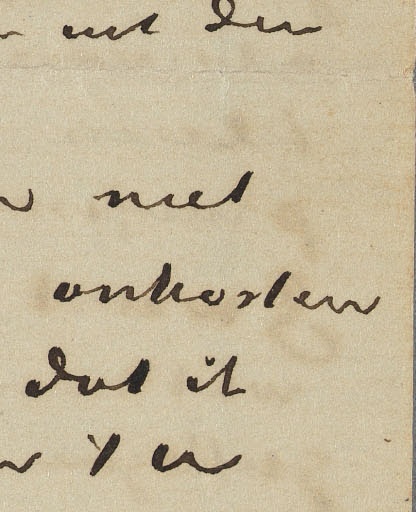 uit den
niet
onkosten
dat it